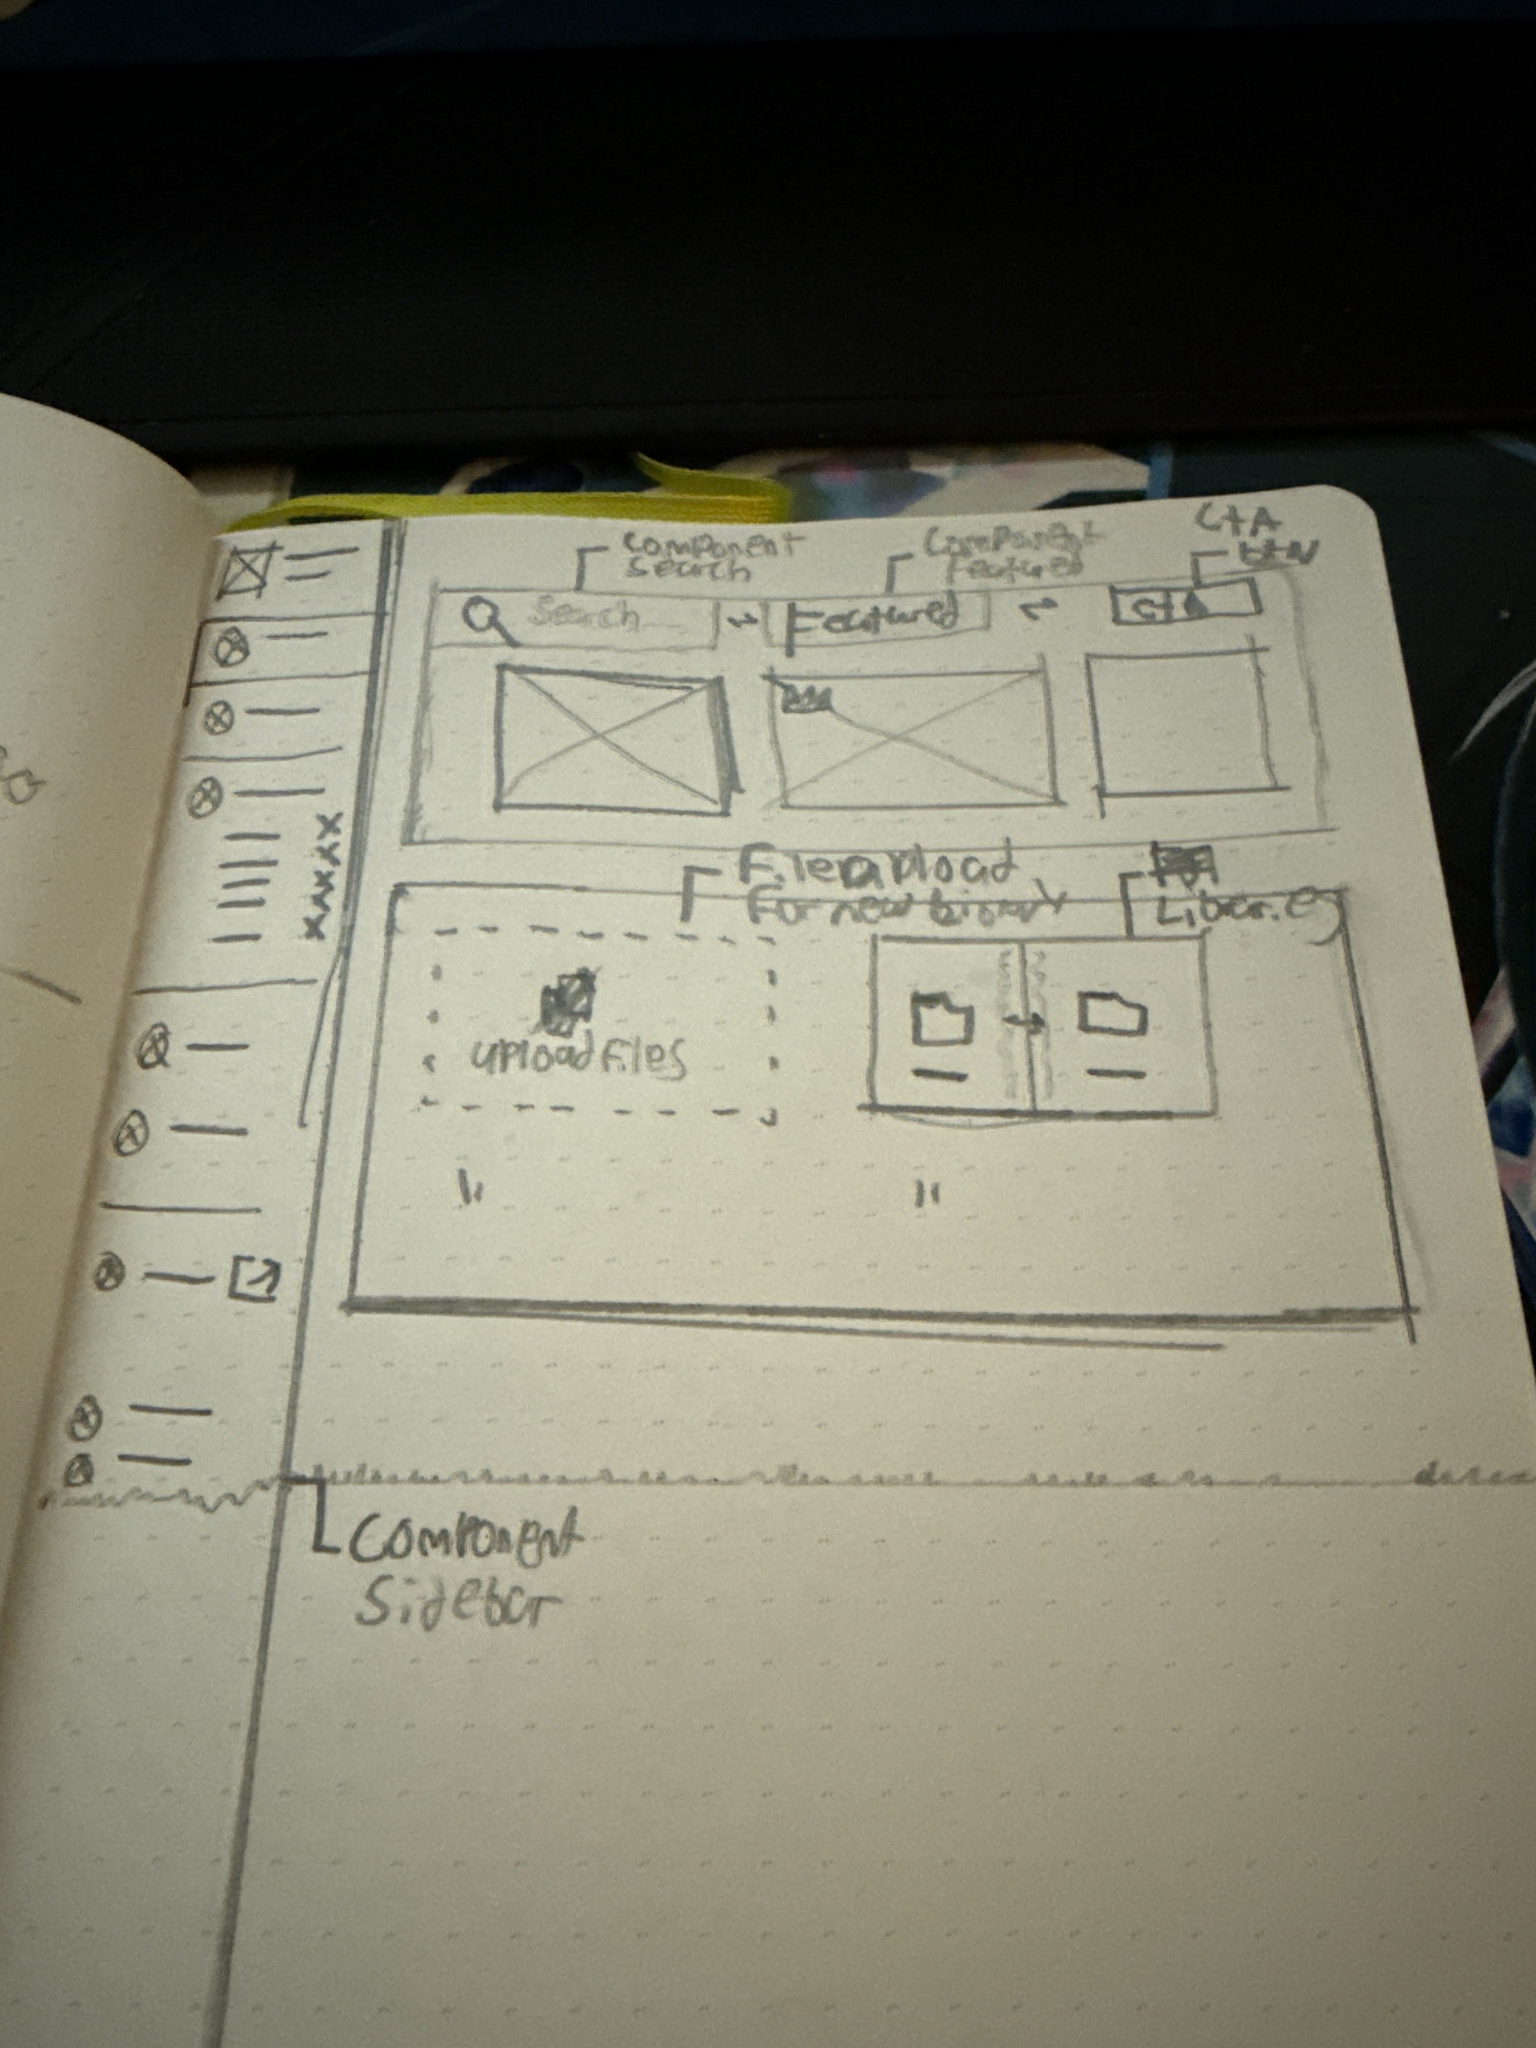 Component
Search
Component
Featured
CTA
BTN
Search
Featured
CTA
File upload
For new binary
Liberies
upload files
Component
Sidebar